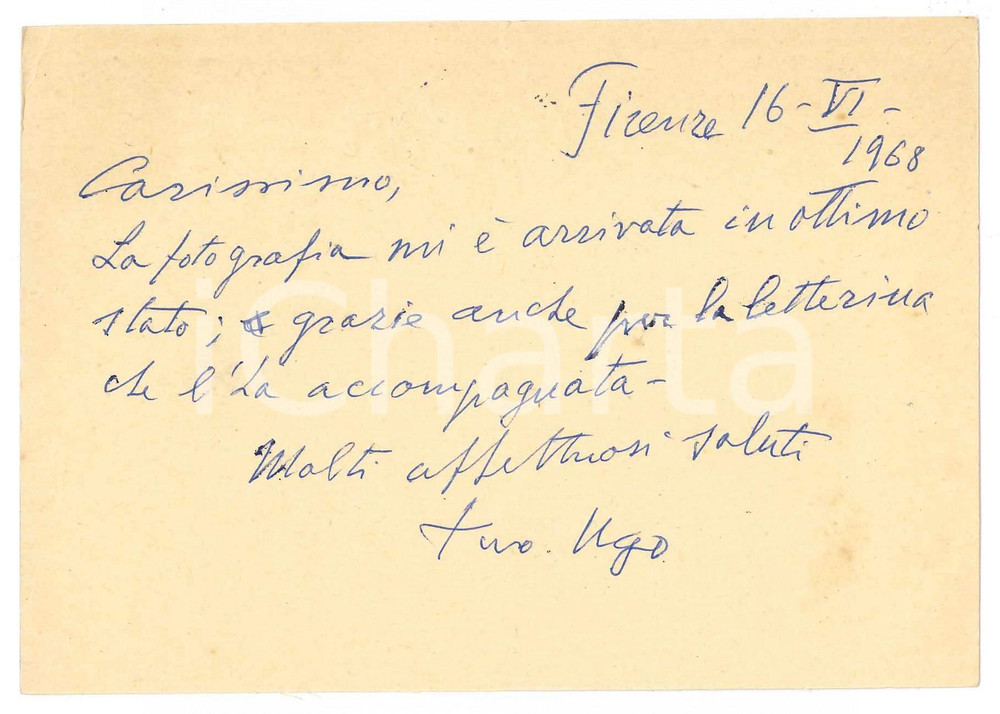 Firenze 16-VI-
1968
Carissimo,
La fotografia mi è arrivata in ottimo
stato; grazie anche per la letterina
che l'ha accompagnata-
Molti affettuosi saluti
tuo Ugo
iCharta